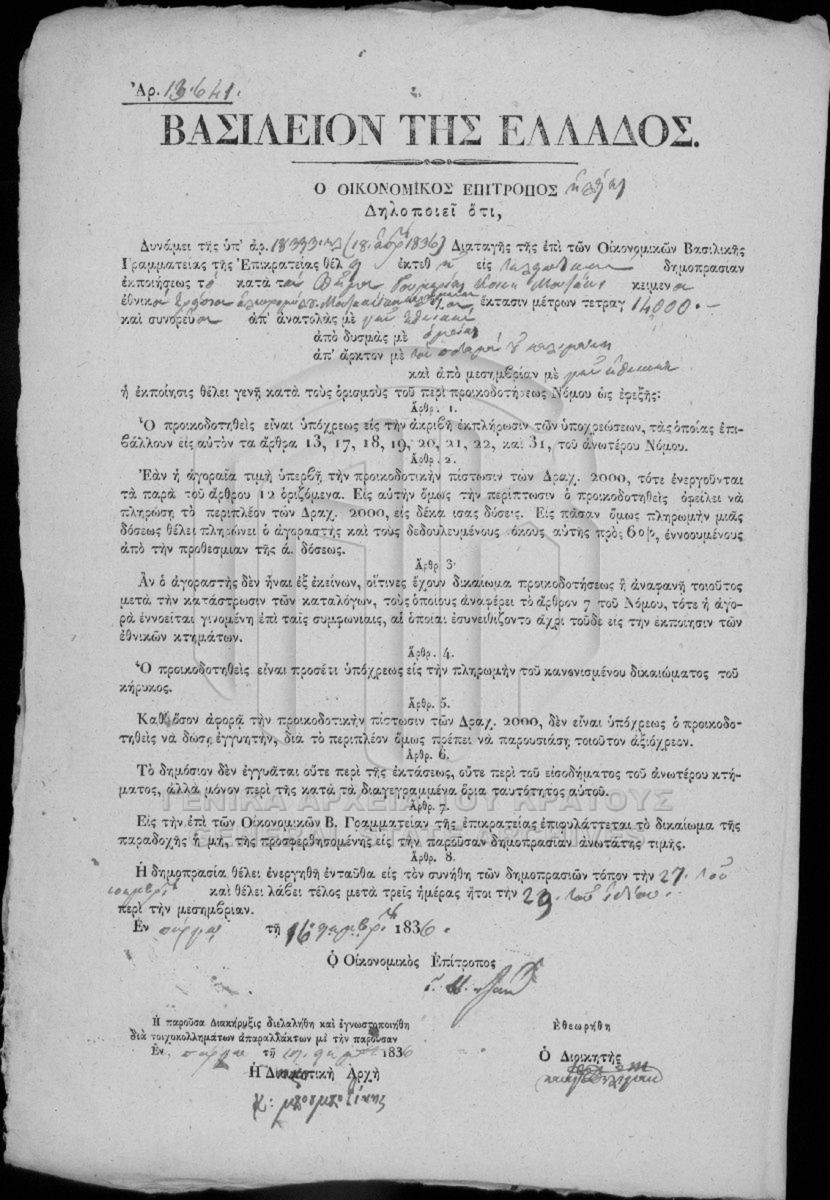 Ἀρ. 13.641.
ΒΑΣΙΛΕΙΟΝ ΤΗΣ ΕΛΛΑΔΟΣ.
Ο ΟΙΚΟΝΟΜΙΚΟΣ ΕΠΙΤΡΟΠΟΣ
Δηλοποιεῖ ὅτι,
Δυνάμει τῆς ὑπ' ἀρ. Διαταγῆς τῆς ἐπὶ τῶν Οἰκονομικῶν Βασιλικῆς
Γραμματείας τῆς Ἐπικρατείας θέλ ἐκτεθ εἰς δημοπρασίαν
ἐκποιήσεως τὸ κατὰ κειμεν
ἐθνικὸν ἔκτασιν μέτρων τετραγ 14000.-
καὶ συνορεῦον ἀπ' ἀνατολὰς μὲ
ἀπὸ δυσμὰς μὲ
ἀπ' ἄρκτον μὲ
καὶ ἀπὸ μεσημβρίαν μὲ
ἡ ἐκποίησις θέλει γενῇ κατὰ τοὺς ὁρισμοὺς τοῦ περὶ προικοδοτήσεως Νόμου ὡς ἐφεξῆς:
Ἄρθρ. 1.
Ὁ προικοδοτηθεὶς εἶναι ὑπόχρεως εἰς τὴν ἀκριβῆ ἐκπλήρωσιν τῶν ὑποχρεώσεων, τὰς ὁποίας ἐπι-
βάλλουν εἰς αὐτὸν τὰ ἄρθρα 13, 17, 18, 19, 20, 21, 22, καὶ 31, τοῦ ἀνωτέρου Νόμου.
Ἄρθρ. 2.
Ἐὰν ἡ ἀγοραία τιμὴ ὑπερβῇ τὴν προικοδοτικὴν πίστωσιν τῶν Δραχ. 2000, τότε ἐνεργοῦνται
τὰ παρὰ τοῦ ἄρθρου 12 ὁριζόμενα. Εἰς αὐτὴν ὅμως τὴν περίπτωσιν ὁ προικοδοτηθεὶς ὀφείλει νὰ
πληρώσῃ τὸ περιπλέον τῶν Δραχ. 2000, εἰς δέκα ἴσας δόσεις. Εἰς πᾶσαν ὅμως πληρωμὴν μιᾶς
δόσεως θέλει πληρώνει ὁ ἀγοραστὴς καὶ τοὺς δεδουλευμένους τόκους αὐτῆς πρὸς 6 0/0, ἐννοουμένους
ἀπὸ τὴν προθεσμίαν τῆς ά. δόσεως.
Ἄρθρ 3.
Ἂν ὁ ἀγοραστὴς δὲν ἦναι ἐξ ἐκείνων, οἵτινες ἔχουν δικαίωμα προικοδοτήσεως ἢ ἀναφανῇ τοιοῦτος
μετὰ τὴν κατάστρωσιν τῶν καταλόγων, τοὺς ὁποίους ἀναφέρει τὸ ἄρθρον 7 τοῦ Νόμου, τότε ἡ ἀγο-
ρὰ ἐννοεῖται γινομένη ἐπὶ ταῖς συμφωνίαις, αἱ ὁποῖαι ἐσυνειθίζοντο ἄχρι τοῦδε εἰς τὴν ἐκποίησιν τῶν
ἐθνικῶν κτημάτων.
Ἄρθρ. 4.
Ὁ προικοδοτηθεὶς εἶναι προσέτι ὑπόχρεως εἰς τὴν πληρωμὴν τοῦ κανονισμένου δικαιώματος τοῦ
κήρυκος.
Ἄρθρ. 5.
Καθ' ὅσον ἀφορᾷ τὴν προικοδοτικὴν πίστωσιν τῶν Δραχ. 2000, δὲν εἶναι ὑπόχρεως ὁ προικοδο-
τηθεὶς νὰ δώσῃ ἐγγυητήν, διὰ τὸ περιπλέον ὅμως πρέπει νὰ παρουσιάσῃ τοιοῦτον ἀξιόχρεον.
Ἄρθρ. 6.
Τὸ δημόσιον δὲν ἐγγυᾶται οὔτε περὶ τῆς ἐκτάσεως, οὔτε περὶ τοῦ εἰσοδήματος τοῦ ἀνωτέρου κτή-
ματος, ἀλλὰ μόνον περὶ τῆς κατὰ τὰ διαγεγραμμένα ὅρια ταυτότητος αὐτοῦ.
ΓΕΝΙΚΑ ΑΡΧΕΙΑ ΤΟΥ ΚΡΑΤΟΥΣ
Ἄρθρ. 7.
Εἰς τὴν ἐπὶ τῶν Οἰκονομικῶν Β. Γραμματείαν τῆς ἐπικρατείας ἐπιφυλάττεται τὸ δικαίωμα τῆς
GENERAL STATE ARCHIVES
παραδοχῆς ἢ μή, τῆς προσφερθησομένης εἰς τὴν παροῦσαν δημοπρασίαν ἀνωτάτης τιμῆς.
Ἄρθρ. 8.
Ἡ δημοπρασία θέλει ἐνεργηθῆ ἐνταῦθα εἰς τὸν συνήθη τῶν δημοπρασιῶν τόπον τὴν 27. τοῦ
καὶ θέλει λάβει τέλος μετὰ τρεῖς ἡμέρας ἤτοι τὴν 29. τοῦ ἰδίου.
περὶ τὴν μεσημβρίαν.
Ἐν τῇ 16 1836.
Ὁ Οἰκονομικὸς Ἐπίτροπος
Ἡ παροῦσα Διακήρυξις διελαλήθη καὶ ἐγνωστοποιήθη
διὰ τοιχοκολλημάτων ἀπαραλλάκτων μὲ τὴν παροῦσαν
Ἐν τῇ 1836
Ἐθεωρήθη
Ὁ Διοικητὴς
Ἡ Διοικητικὴ Ἀρχὴ